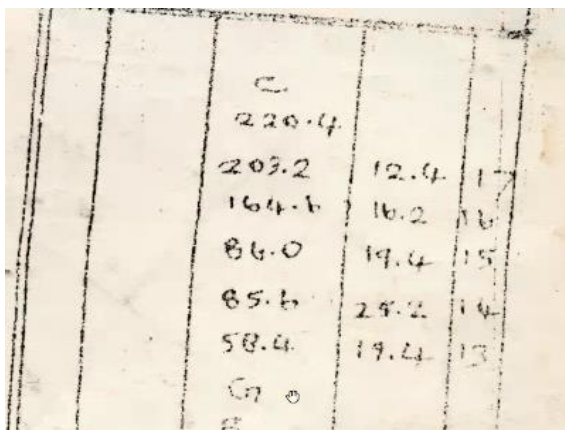 C
220.4
203.2 12.4 17
164.6 16.2 16
86.0 19.4 15
85.6 14
58.4 19.4 13
G